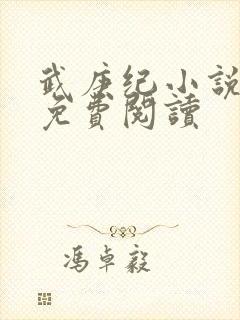 武庚纪小説
免費閱讀
馮卓毅